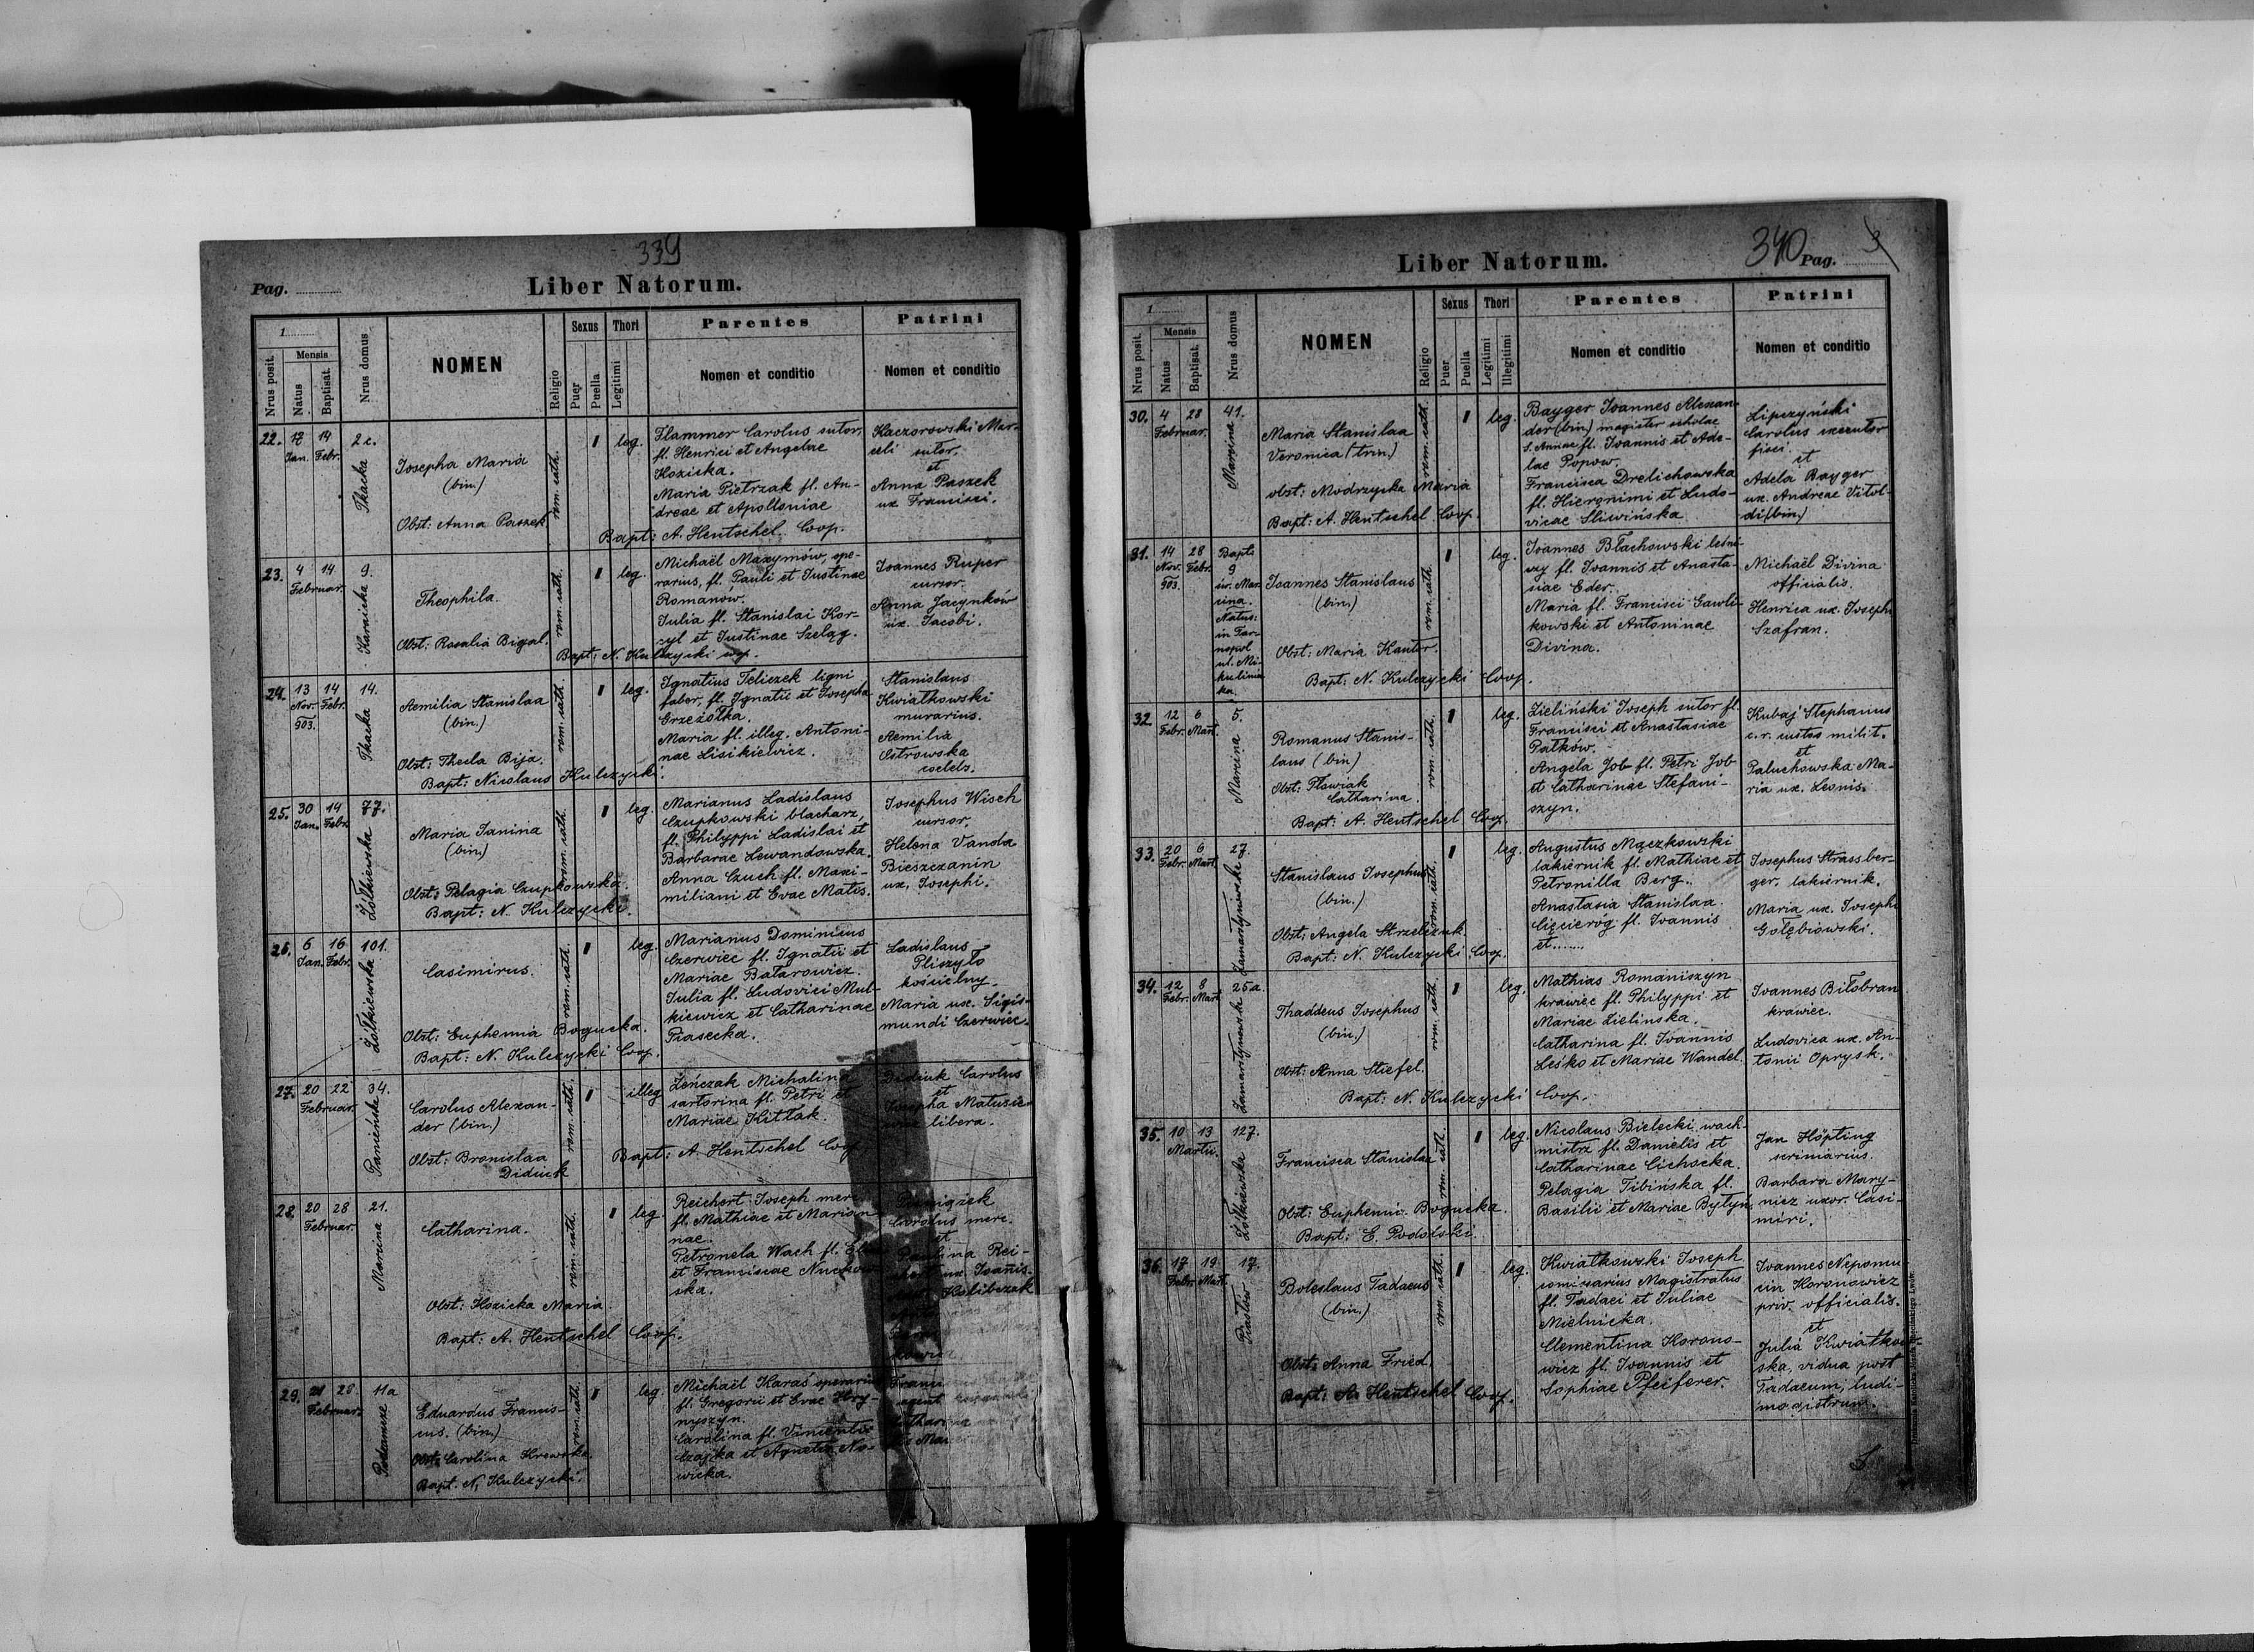 339
Pag.
Liber Natorum.
1
Nrus posit.
Mensis
Natus
Baptisat.
Nrus domus
NOMEN
Religio
Sexus
Puer
Puella
Thori
Legitimi
Parentes
Nomen et conditio
Patrini
Nomen et conditio
22. 12 14 2 c.
Jan. Febr.
Tkacka
Josepha Maria
(bin.)
Obst: Anna Paszek
rom. cath.
1 leg.
Flammer Carolus sutor,
fl. Henrici et Angelae
Kozicka.
Maria Pietrzak fl. An-
dreae et Apolloniae
Bapt: A. Hentschel Coop.
Kaczorowski Mar-
celi sutor.
et
Anna Paszek
ux. Francisci.
23. 4 14 9.
Februar.
Karaicka
Theophila.
Obst: Rosalia Bigal.
rom. cath.
1 leg.
Michaël Maxymów, ope-
rarius, fl. Pauli et Justinae
Romanow.
Julia fl. Stanislai Kor-
zyl et Justinae Szeląg.
Bapt: N. Kulczycki
Joannes Ruper
cursor.
Anna Jacynków
ux. Jacobi.
24. 13 14 14.
Nov. Febr.
903.
Tkacka
Aemilia Stanislaa
(bin.)
Obst: Thecla Bija.
Bapt: Nicolaus Kulczycki.
rom. cath.
1 leg.
Ignatius Teliczek ligni
faber, fl. Ignatii et Josepha
Grzeżołka.
Maria fl. illeg. Antoni-
nae Lisikiewicz.
Stanislaus
Kwiatkowski
murarius.
Aemilia
Ostrowska
coelebs.
25. 30 14 77.
Jan. Febr.
Żółkiewska
Maria Janina
(bin.)
Obst: Pelagia Czupkowska.
Bapt: N. Kulczycki.
rom. cath.
1 leg.
Marianus Ladislaus
Czupkowski blacharz,
fl. Philyppi Ladislai et
Barbarae Lewandowska.
Anna Czuch fl. Maxi-
miliani et Evae Matis.
Josephus Wisch
cursor
Helena Vanda
Bieszczanin
ux. Josephi.
26. 6 16 101.
Jan. Febr.
Żółkiewska
Casimirus.
Obst: Euphemia Bogucka.
Bapt: N. Kulczycki Coop.
rom. cath.
1 leg.
Marianus Dominicus
Czerwiec fl. Ignatii et
Mariae Batarowicz.
Julia fl. Ludovici Mul-
kiewicz et Catharinae
Piasecka.
Ladislaus
Pliszyło
kościelny.
Maria ux. Sigis-
mundi Czerwiec.
27. 20 22 34.
Februar.
Panieńska
Carolus Alexan-
der (bin.)
Obst: Bronislaa
Didiuk
rom. cath.
1 illeg
Leńczak Michalina
sartorina fl. Petri et
Mariae Kittak.
Bapt: A. Hentschel Coop
Didiuk Carolus
et
Josepha Matusie-
wicz libera.
28. 20 28 21.
Februar.
Marcina
Catharina.
Obst: Kozicka Maria.
Bapt: A. Hentschel Coop.
rom. cath.
1 leg.
Reichert Joseph merc.
fl. Mathiae et Marian-
nae.
Petronela Wach fl.
et Franciscae
ska.
Carolus merc.
et
Paulina Rei-
chert ux. Joannis.
29. 21 28 11a
Februar.
Podzamcze
Eduardus Francis-
cus. (bin.)
Obst: Carolina Krewska.
Bapt. N. Kulczycki.
rom. cath.
1 leg.
Michaël Karaś operarius
fl. Gregorii et Evae Hry-
nyszyn.
Carolina fl. Vincentii
Czajka et Agnetis No-
wicka.
340
Pag. 3
Liber Natorum.
1
Nrus posit.
Mensis
Natus
Baptisat.
Nrus domus
NOMEN
Religio
Sexus
Puer
Puella
Thori
Legitimi
Illegitimi
Parentes
Nomen et conditio
Patrini
Nomen et conditio
30. 4 28 41.
Februar.
Marcina
Maria Stanislaa
Veronica (trin.)
obst: Modrzycka Maria
Bapt: A. Hentschel Coop.
rom. cath.
1 leg.
Bayger Joannes Alexan-
der (bin) magister scholae
S. Annae fl. Joannis et Ade-
lae Popow.
Francisca Drelichowska
fl. Hieronimi et Ludo-
vicae Sliwińska
Lipczyński
Carolus executor
fisci.
et
Adela Bayger
ux. Andreae Vitol-
di (bin.)
31. 14 28 Bapt:
Nov. Febr. 9
903.
św. Mar-
cina.
Natus:
in Tar-
nopol
ul. Mi-
kulinie-
ka.
Joannes Stanislaus
(bin.)
Obst: Maria Kantor.
Bapt: N. Kulczycki Coop.
rom. cath.
1 leg.
Joannes Błachowski leśni-
czy fl. Joannis et Anasta-
siae Eder.
Maria fl. Francisci Gawli-
kowski et Antoninae
Divina.
Michaël Divina
officialis.
Henrica ux. Josephi
Szafran.
32. 12 6 5.
Febr. Mart.
Marcina
Romanus Stanis-
laus (bin)
Obst: Pławiak
Catharina.
Bapt: A. Hentschel Coop.
rom. cath.
1 leg.
Zieliński Joseph sutor fl.
Francisci et Anastasiae
Patków.
Angela Job fl. Petri Job
et Catharinae Stefani-
szyn.
Kubaj Stephanus
c.r. custos milit.
et
Paluchowska Ma-
ria ux. Leonis.
33. 20 6 27.
Febr. Mart.
Zamarstynowska
Stanislaus Josephus
(bin.)
Obst: Angela Strzelczuk
Bapt: N. Kulczycki Coop.
rom. cath.
1 leg.
Augustus Mączkowski
lakiernik fl. Mathiae et
Petronilla Berg.
Anastasia Stanislaa
Cięcieróg fl. Joannis
et.......
Josephus Strassber-
ger. lakiernik.
Maria ux. Josephi
Gołębiowski.
34. 12 8 25a.
Febr. Mart.
Zamarstynowska
Thaddeus Josephus
(bin.)
Obst: Anna Stiefel.
Bapt: N. Kulczycki Coop.
rom. cath.
1 leg.
Mathias Romaniszyn
krawiec fl. Philyppi et
Mariae Zielinska.
Catharina fl. Joannis
Leśko et Mariae Wandel.
Joannes Biłobran
krawiec.
Ludovica ux. An-
tonii Oprysk.
35. 10 13 127.
Martii.
Żółkiewska
Francisca Stanislaa
Obst: Euphemia Bogucka.
Bapt: E. Podolski.
rom. cath.
1 leg.
Nicolaus Bielecki, wach-
mistrz fl. Danielis et
Catharinae Cichocka.
Pelagia Tibińska fl.
Basilii et Mariae Bytyń.
Jan Höpting
scriniarius.
Barbara Mary-
nicz uxor. Casi-
miri.
36. 17 19 17.
Febr. Mart.
Piastów
Boleslaus Tadaeus
(bin.)
Obst: Anna Fried.
Bapt: A. Hentschel Coop.
rom. cath.
1 leg.
Kwiatkowski Joseph
comisarius Magistratus
fl. Tadaei et Juliae
Mielnicka.
Clementina Korono-
wicz fl. Joannis et
Sophiae Pfeiferer.
Joannes Nepomu-
cin Koronowicz
priv. officialis.
et
Julia Kwiatkow-
ska, vidua post
Tadaeum, ludi-
magistrum.